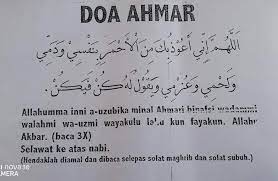 DOA AHMAR
اللَّهُمَّ إِنِّي أَعُوْذُبِكَ مِنَ الْأَحْمَرِ بِنَفْسِيْ وَدَمِّيْ
وَلَحْمِيْ وَعَزْمِيْ وَيَقُوْلُ لَهُ كُنْ فَيَكُنْ.
Allahumma inni a-uzubika minal Ahmari binafsi wadammi
walahmi wa-uzmi wayakulu lahu kun fayakun. Allahu
Akbar. (baca 3X)
Selawat ke atas nabi.
(Hendaklah diamal dan dibaca selepas solat maghrib dan solat subuh.)
nova
AMERA